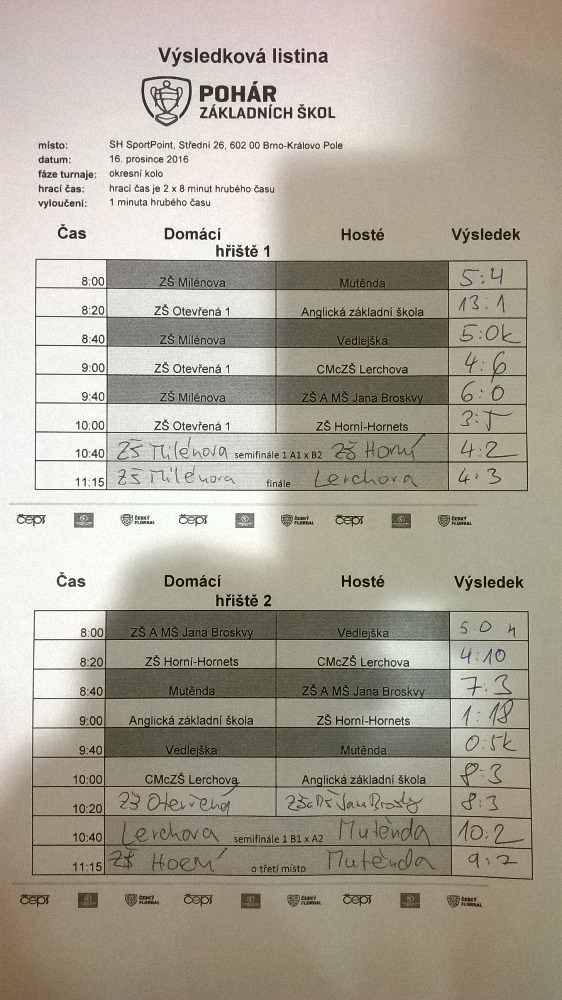 Výsledková listina
POHÁR
ZÁKLADNÍCH ŠKOL
místo: SH SportPoint, Střední 26, 602 00 Brno-Královo Pole
datum: 16. prosince 2016
fáze turnaje: okresní kolo
hrací čas: hrací čas je 2 x 8 minut hrubého času
vyloučení: 1 minuta hrubého času
Čas Domácí Hosté Výsledek
hřiště 1
8:00 ZŠ Milénova Mutěnda 5:4
8:20 ZŠ Otevřená 1 Anglická základní škola 13:1
8:40 ZŠ Milénova Vedlejška 5:0k
9:00 ZŠ Otevřená 1 CMcZŠ Lerchova 4:6
9:40 ZŠ Milénova ZŠ A MŠ Jana Broskvy 6:0
10:00 ZŠ Otevřená 1 ZŠ Horní-Hornets 3:5
10:40 ZŠ Milénova semifinále 1 A1 x B2 ZŠ Horní 4:2
11:15 ZŠ Milénova finále Lerchova 4:3
čeps ČESKÝ FLORBAL čeps ČESKÝ FLORBAL čeps ČESKÝ FLORBAL
Čas Domácí Hosté Výsledek
hřiště 2
8:00 ZŠ A MŠ Jana Broskvy Vedlejška 5:0
8:20 ZŠ Horní-Hornets CMcZŠ Lerchova 4:10
8:40 Mutěnda ZŠ A MŠ Jana Broskvy 7:3
9:00 Anglická základní škola ZŠ Horní-Hornets 1:18
9:40 Vedlejška Mutěnda 0:5k
10:00 CMcZŠ Lerchova Anglická základní škola 8:3
10:20 ZŠ Otevřená Jan Brosky 8:3
10:40 Lerchova semifinále 1 B1 x A2 Mutěnda 10:2
11:15 ZŠ Horní o třetí místo Mutěnda 9:7
čeps ČESKÝ FLORBAL čeps ČESKÝ FLORBAL čeps ČESKÝ FLORBAL